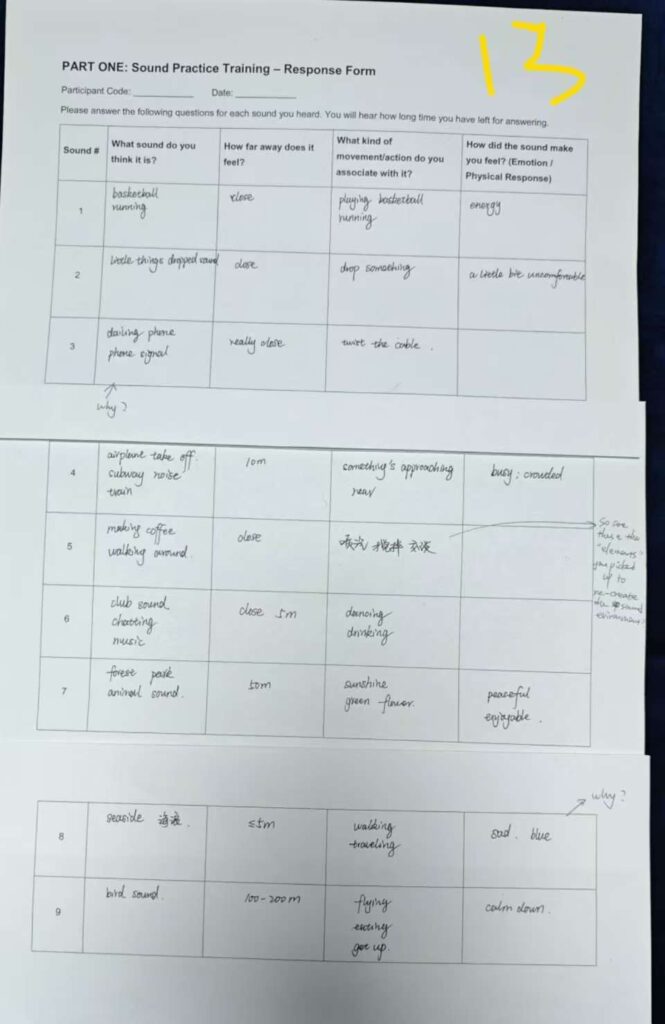 13
PART ONE: Sound Practice Training – Response Form
Participant Code: ____________ Date: ____________
Please answer the following questions for each sound you heard. You will hear how long time you have left for answering.
Sound #
What sound do you
think it is?
How far away does it
feel?
What kind of
movement/action do you
associate with it?
How did the sound make
you feel? (Emotion /
Physical Response)
1
basketball
running
close
playing basketball
running
energy
2
little things dropped sound
close
drop something
a little bit uncomfortable
3
dailing phone
phone signal
really close
twist the cable .
why?
4
airplane take off.
subway noise
train
10m
something's approaching
near
busy ; crowded
5
making coffee
walking around.
close
搅拌
So are
these the
"elements"
you picked
up to
re-create
the sound
6
club sound
chatting
music
close 5m
dancing
drinking
7
forest park
animal sound.
50m
sunshine
green flower.
peaceful
enjoyable .
8
seaside 海浪.
≤5m
walking
traveling
sad . blue
why?
9
bird sound.
100-200m
flying
get up.
calm down.